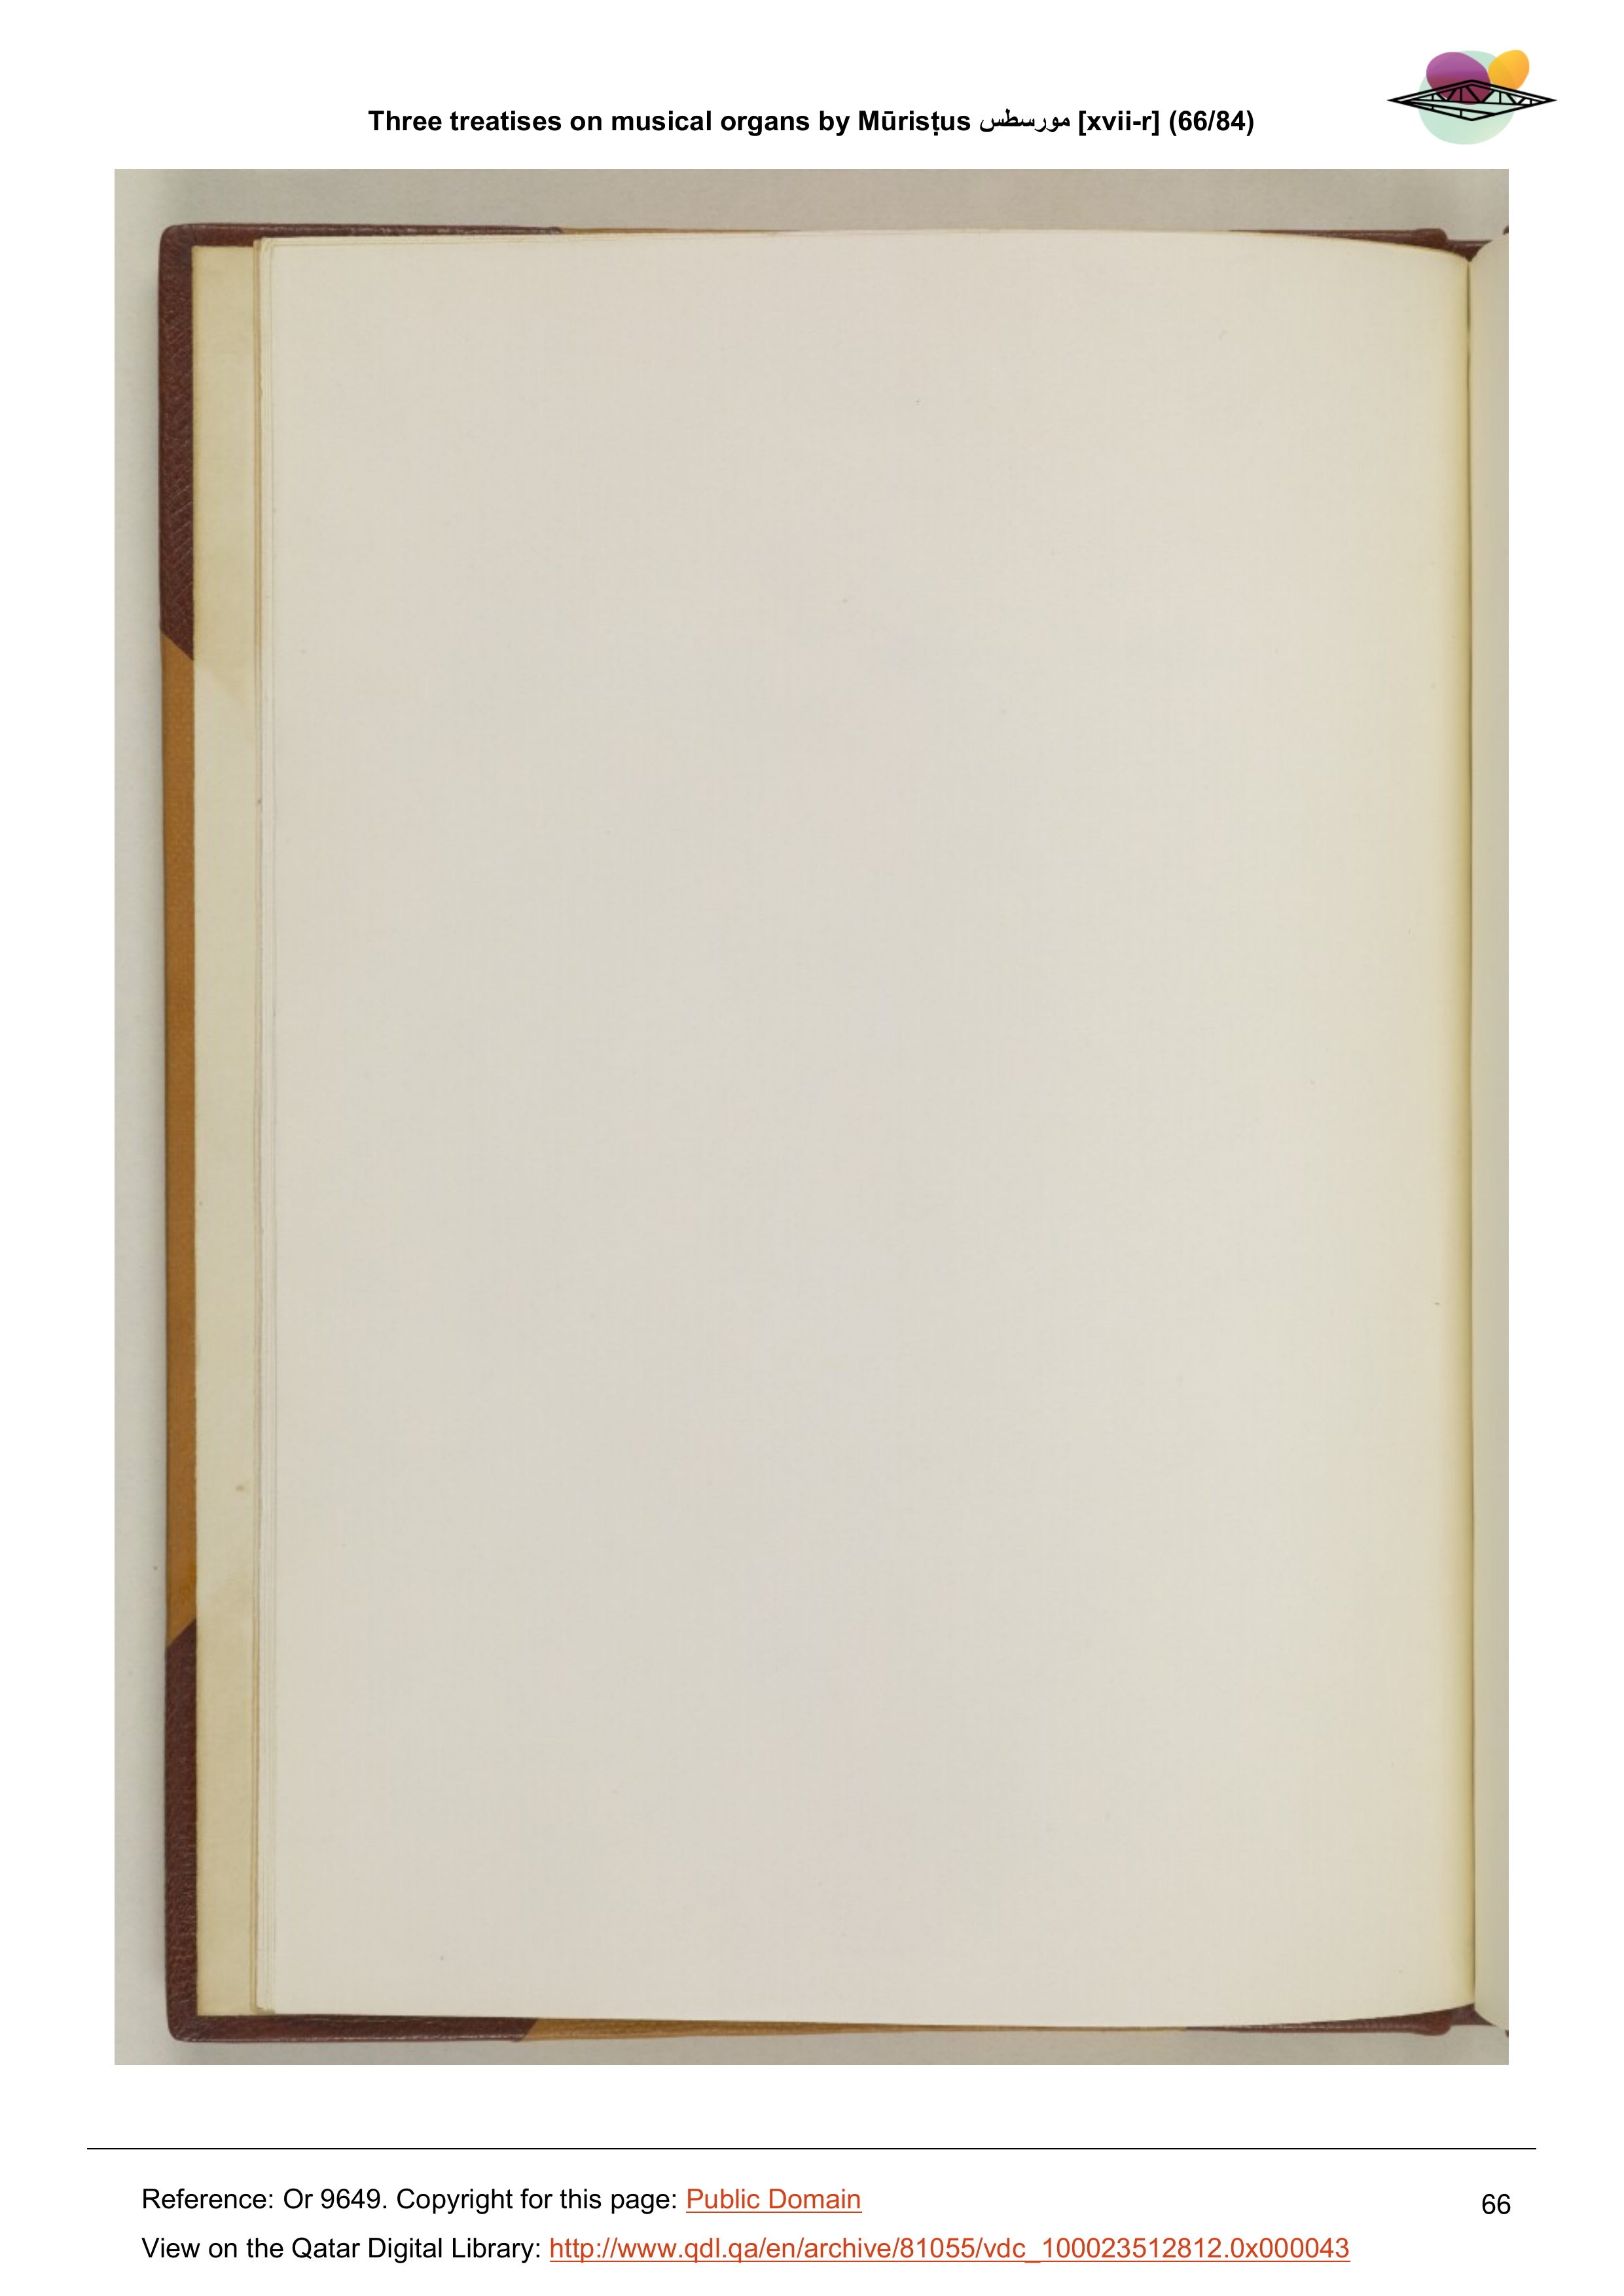 Three treatises on musical organs by Mūrisṭus مورسطس [xvii-r] (66/84)
Reference: Or 9649. Copyright for this page: Public Domain
66
View on the Qatar Digital Library: http://www.qdl.qa/en/archive/81055/vdc_100023512812.0x000043